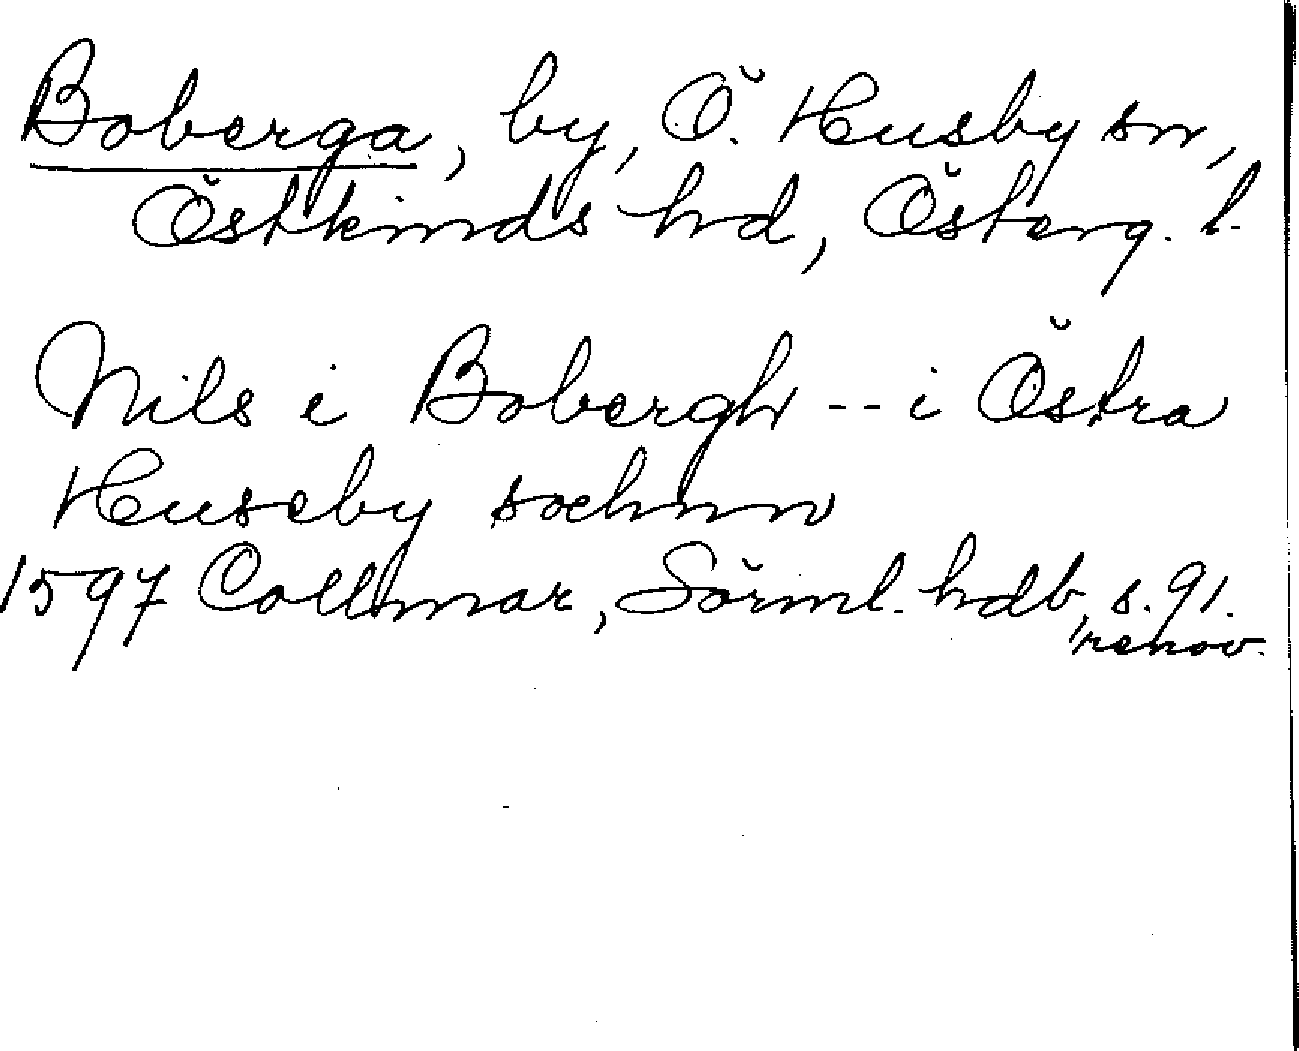 Boberga, by, Ö. Husby sn,
Östkinds hd, Österg. l.
Nils i Bobergh -- i Östra
Huseby sochnn
1597 Collmar, Sörml. hdb, s. 91.
renov.